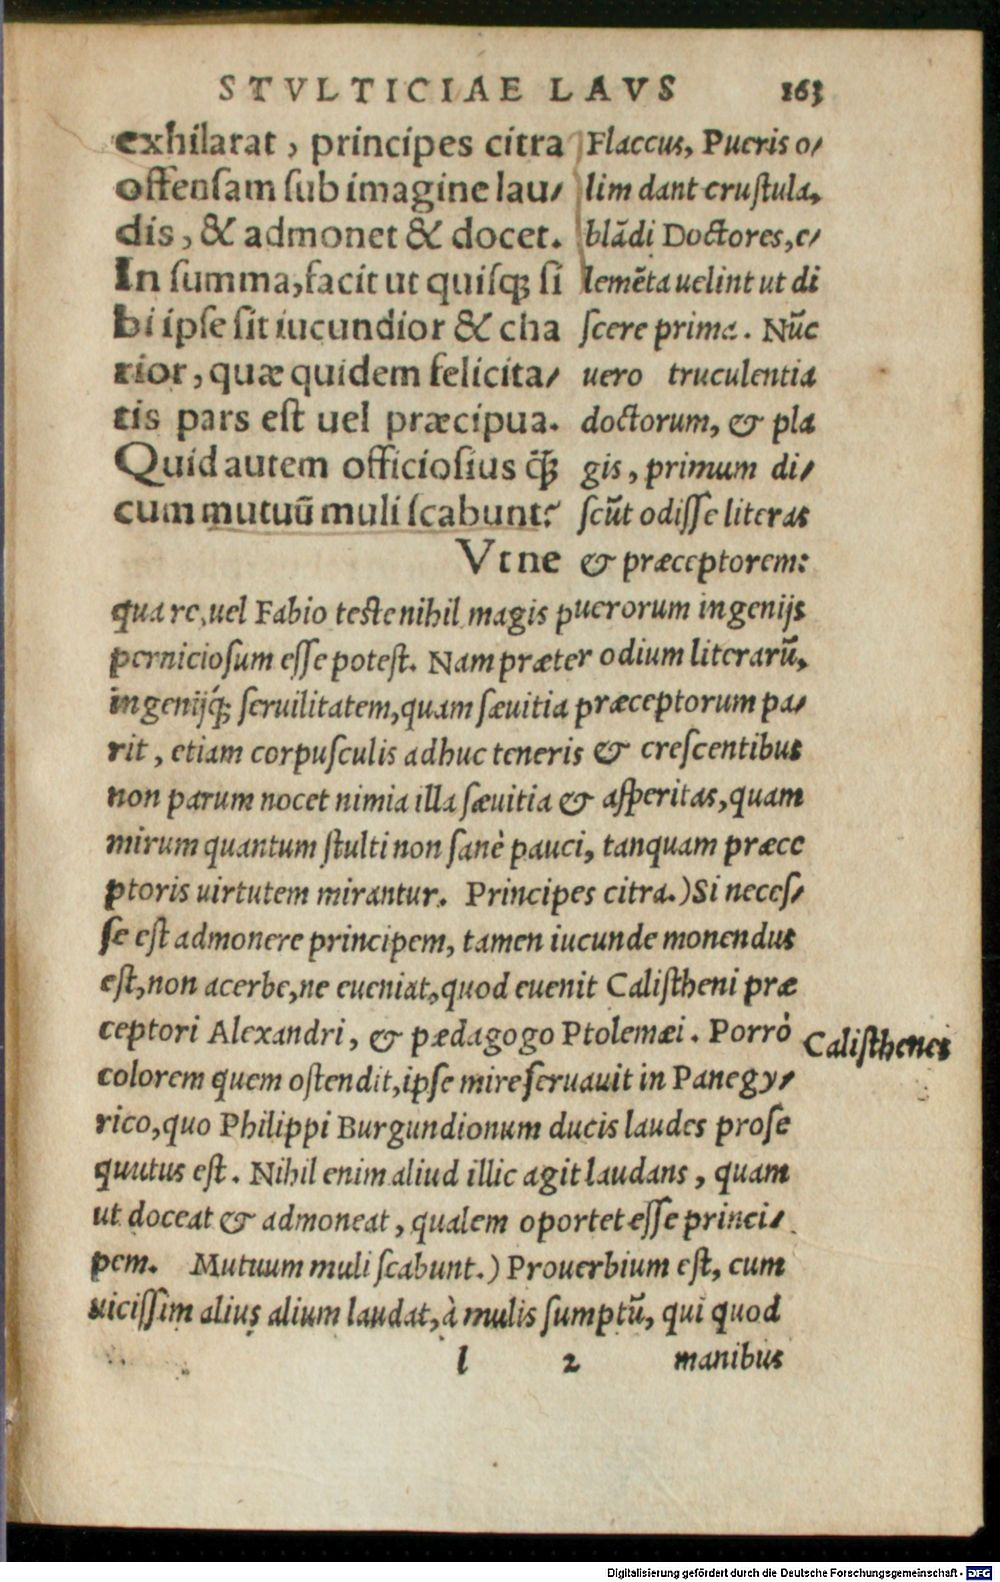 STVLTICIAE LAVS 163
exhilarat, principes citra
offensam sub imagine lau/
dis, & admonet & docet.
In summa, facit ut quisq̃ si
bi ipse sit iucundior & cha
rior, quæ quidem felicita/
tis pars est uel præcipua.
Quid autem officiosius q̃̈
cum mutuū muli scabunt?
Vtne
Flaccus, Pueris o/
lim dant crustula,
blādi Doctores, e/
lemēta uelint ut di
scere prima. Nūc
uero truculentia
doctorum, & pla
gis, primum di/
scūt odisse literas
& præceptorem:
quare, uel Fabio teste nihil magis puerorum ingenijs
perniciosum esse potest. Nam præter odium literarū,
ingenijq́; seruilitatem, quam sæuitia præceptorum pa/
rit, etiam corpusculis adhuc teneris & crescentibus
non parum nocet nimia illa sæuitia & asperitas, quam
mirum quantum stulti non sanè pauci, tanquam præce
ptoris uirtutem mirantur. Principes citra.) Si neces/
se est admonere principem, tamen iucunde monendus
est, non acerbe, ne eueniat, quod euenit Calistheni præ
ceptori Alexandri, & pædagogo Ptolemæi. Porrò
Calisthenes
colorem quem ostendit, ipse mire seruauit in Panegy/
rico, quo Philippi Burgundionum ducis laudes prose
quutus est. Nihil enim aliud illic agit laudans, quam
ut doceat & admoneat, qualem oportet esse princi/
pem. Mutuum muli scabunt.) Prouerbium est, cum
uicissim alius alium laudat, à mulis sumptū, qui quod
l 2 manibus
Digitalisierung gefördert durch die Deutsche Forschungsgemeinschaft - DFG